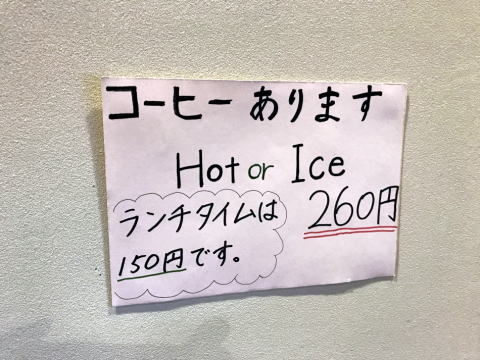 コーヒーあります
Hot or Ice
260円
ランチタイムは
150円です。